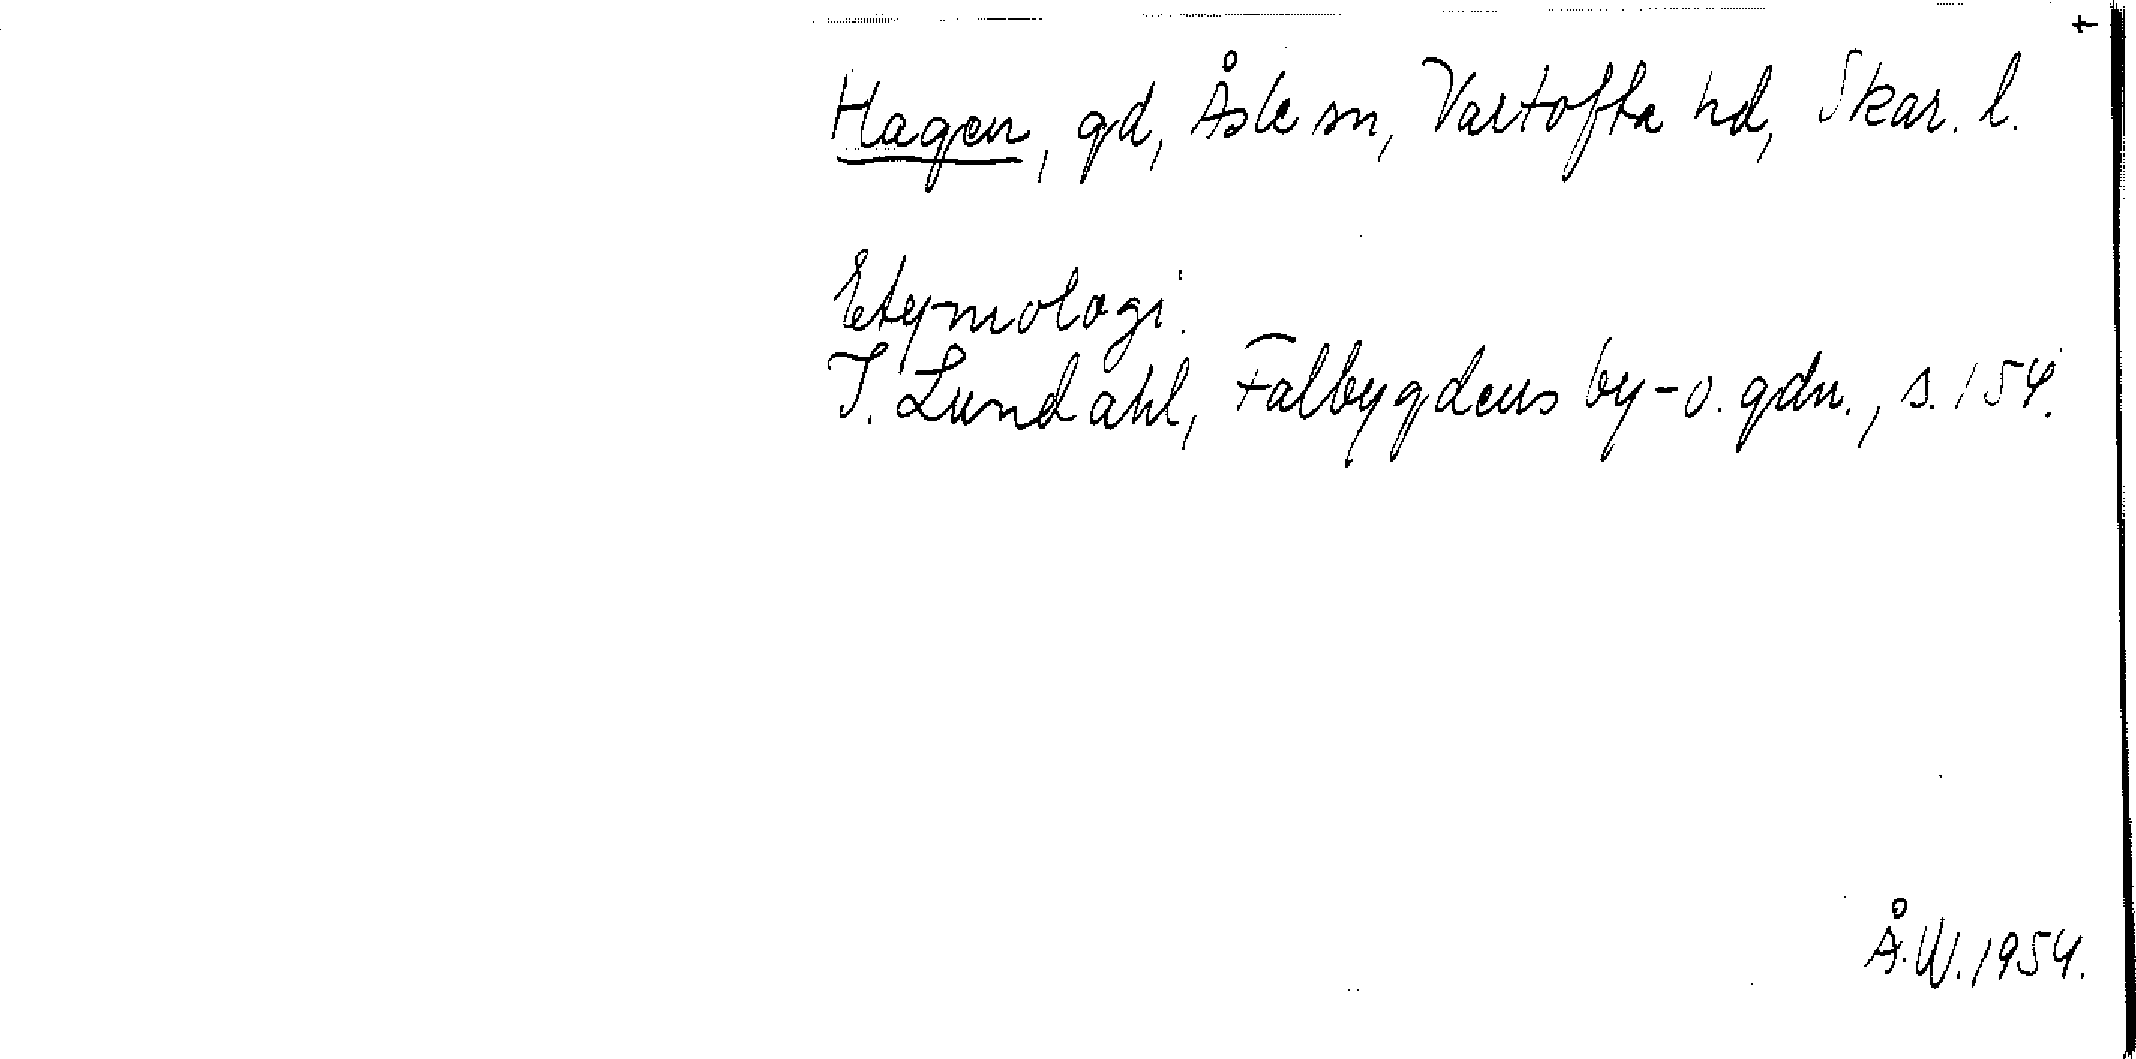 Hagen, gd, Åsle sn, Vartofta hd, Skar. l.
Etymologi.
I. Lundahl, Falbygdens by- o. gdn., s. 154.
Å.W. 1954.